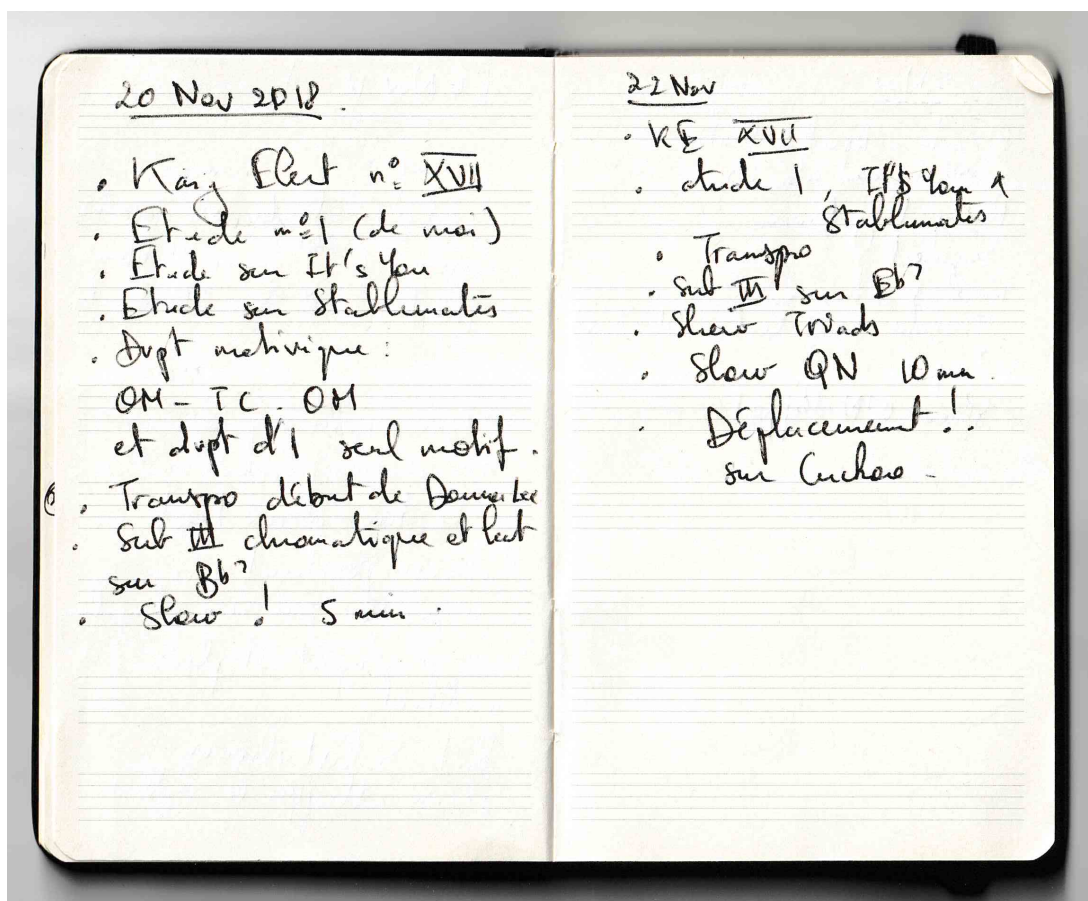 20 Nov 2018.
. Karg Elert nº XVII
. Etude nº1 (de moi)
. Etude sur It's You
. Etude sur Stablemates
. Dvpt motivique :
OM - TC - OM
et dvpt d'1 seul motif.
. Transpo début de Donna Lee
. Sub III chromatique et
sur Bb7
. Slow ! 5 min.
22 Nov
. KE XVII
. etude 1, It's You
Stablemates
. Transpo
. Sub III sur Bb7
. Triads
. Slow QN 10 min.
. Déplacement !!
sur